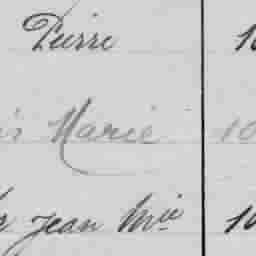 Pierre 10
Marie 10
Jean Mie 10